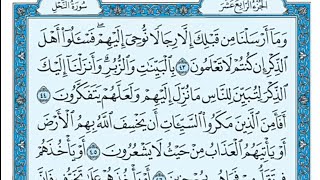 الجزء الرابع عشر سورة النحل
وَمَا أَرْسَلْنَا مِن قَبْلِكَ إِلَّا رِجَالًا نُّوحِي إِلَيْهِمْ ۚ فَسْـَٔلُوٓا۟ أَهْلَ
ٱلذِّكْرِ إِن كُنتُمْ لَا تَعْلَمُونَ ٤٣ بِٱلْبَيِّنَـٰتِ وَٱلزُّبُرِ ۗ وَأَنزَلْنَآ إِلَيْكَ
ٱلذِّكْرَ لِتُبَيِّنَ لِلنَّاسِ مَا نُزِّلَ إِلَيْهِمْ وَلَعَلَّهُمْ يَتَفَكَّرُونَ ٤٤
أَفَأَمِنَ ٱلَّذِينَ مَكَرُوا۟ ٱلسَّيِّـَٔاتِ أَن يَخْسِفَ ٱللَّهُ بِهِمُ ٱلْأَرْضَ
أَوْ يَأْتِيَهُمُ ٱلْعَذَابُ مِنْ حَيْثُ لَا يَشْعُرُونَ ٤٥ أَوْ يَأْخُذَهُمْ
فِى تَقَلُّبِهِمْ فَمَا هُم بِمُعْجِزِينَ ٤٦ أَوْ يَأْخُذَهُمْ عَلَىٰ تَخَوُّفٍ فَإِنَّ